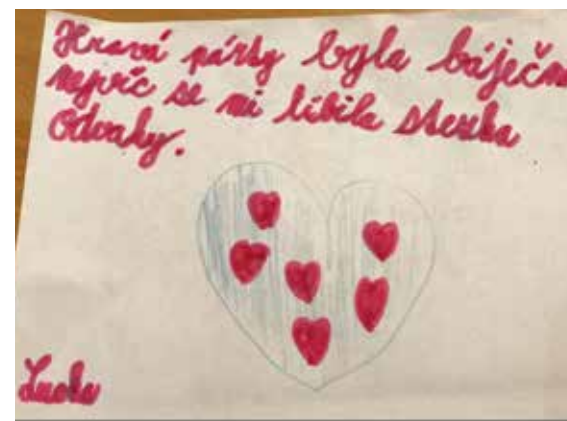 Hravá párty byla báječn
nejvíc se mi líbila stezka
Odvahy.